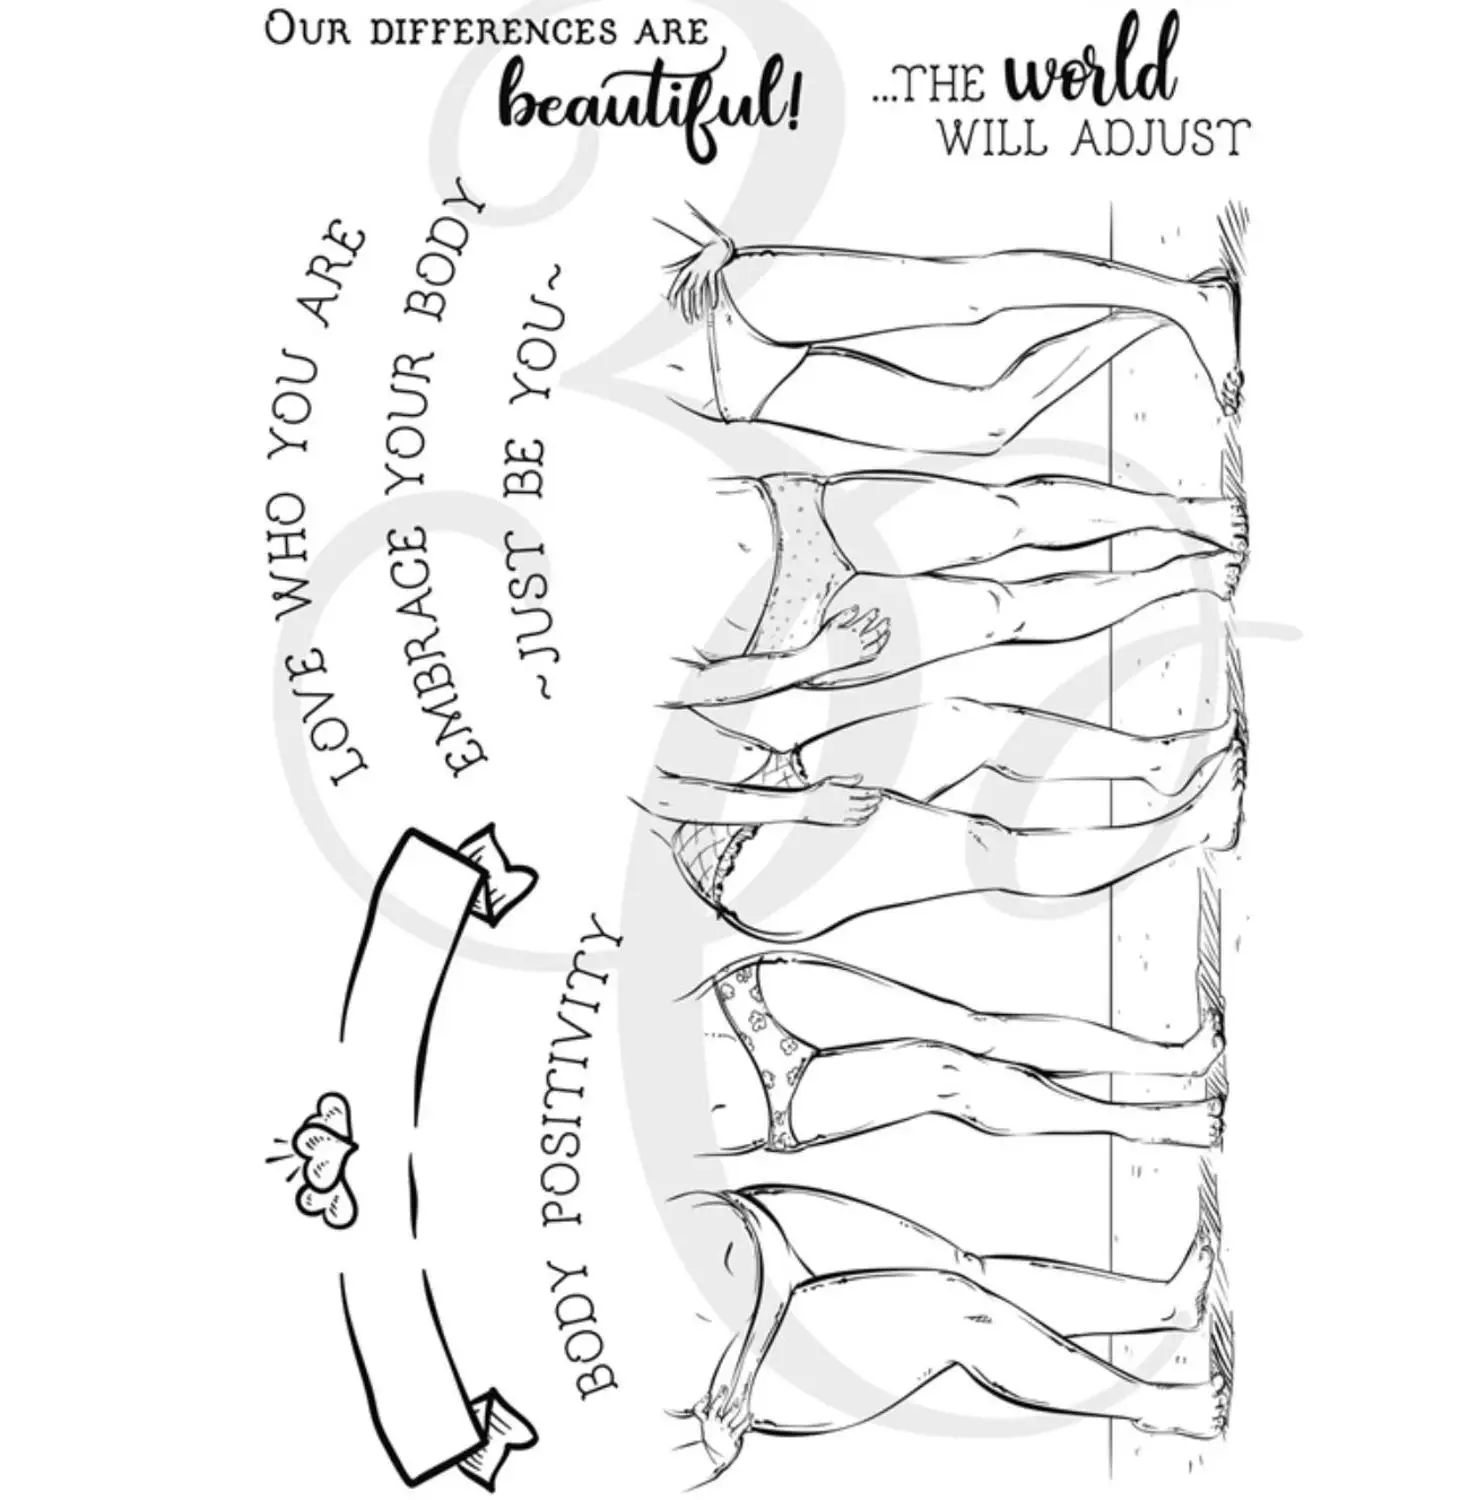 OUR DIFFERENCES ARE
beautiful!
...THE world
WILL ADJUST
LOVE WHO YOU ARE
EMBRACE YOUR BODY
~JUST BE YOU~
BODY POSITIVITY